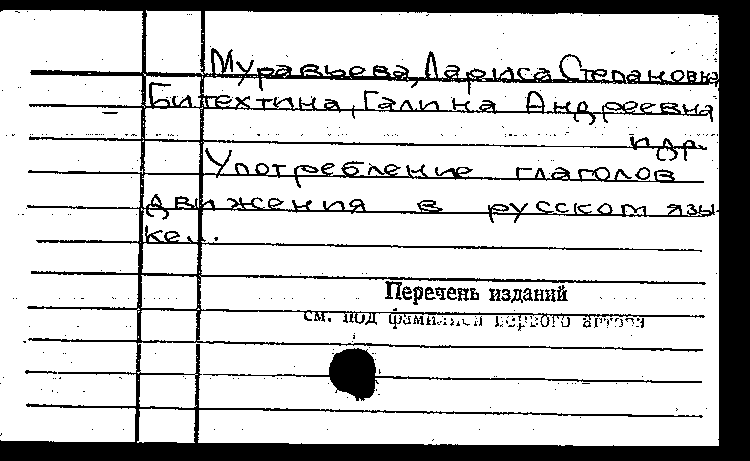 Муравьева, Лариса Степановна
Битехтина, Галина Андреевна
и др.
Употребление глаголов
движения в русском язы-
ке...
Перечень изданий
см. под фамилией первого автора